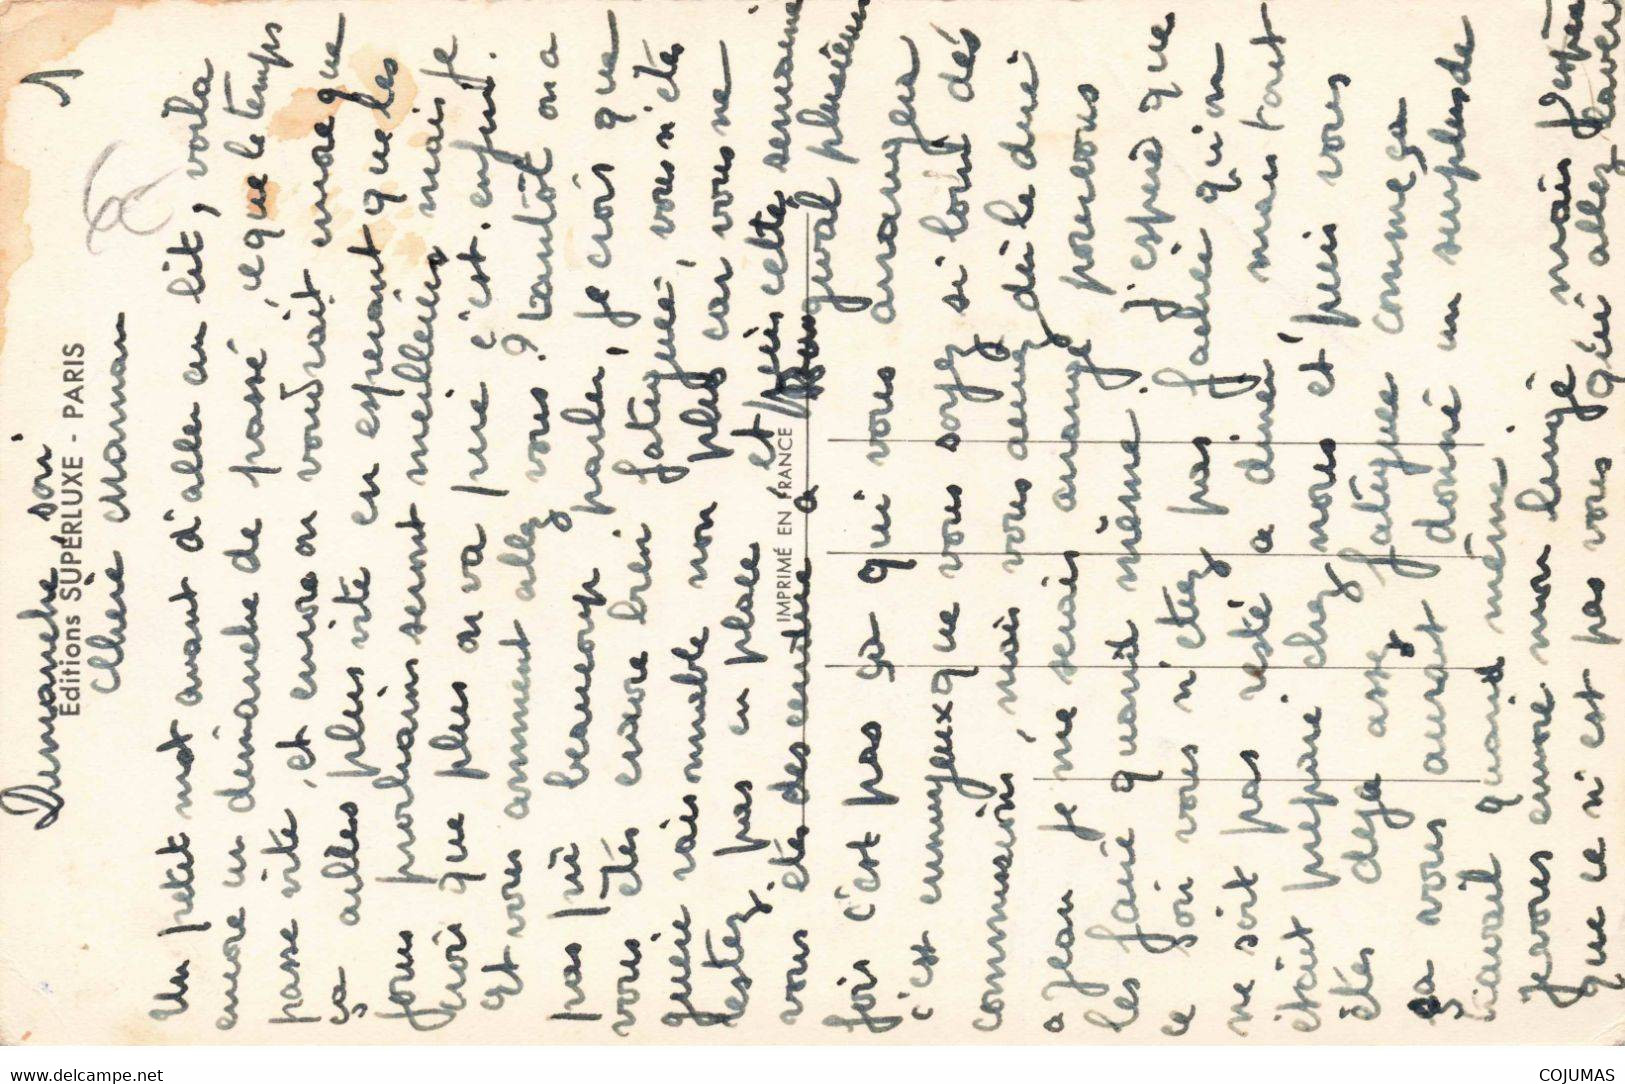 Dimanche soir
Editions SUPERLUXE - PARIS
1
chère maman
Un petit mot avant d'aller au lit, voila
encore un dimanche de passé, ce que le temps
passe vite, et encore on voudrait encore que
ça ailles plus vite en esperant que les
jours prochains seront meilleurs, mais je
crois que plus on va pire c'est. enfin.
et vous comment allez vous ? tantôt on a
pas pû beaucoup parler, je crois que
vous êtes encore bien fatiguée, vous n'etes
guère raisonnable non plus car vous ne
restez pas en place et puis cette semaine
IMPRIMÉ EN FRANCE
vous êtes descendue a plusieurs
fois c'est pas ça qui vous arrangera
c'est ennuyeux que vous soyez si loin dés
commission, mais vous auriez dû le dire
a Jean je me serais arrangé pour vous
les faire quand même. J'espère que
ce soir vous n'etiez pas fachée qu'on
ne soit pas resté a diner mais tout
était preparé chez nous et puis vous
êtes deja assez fatiguée comme ça
ça vous aurait donné un surplus de
travail quand même
Je vous envoie mon linge mais j'espère
que ce n'est pas vous qui allez laver
www.delcampe.net
COJUMAS